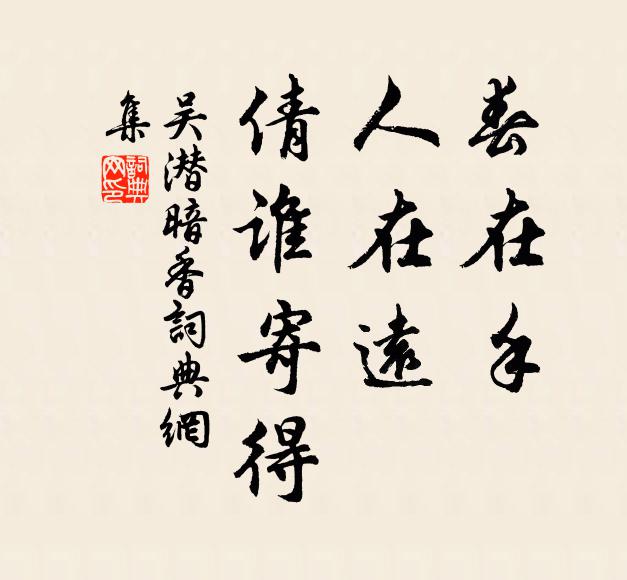 春在手
人在遠
倩谁寄得
吴潜暗香詞典網
集
詞典网印